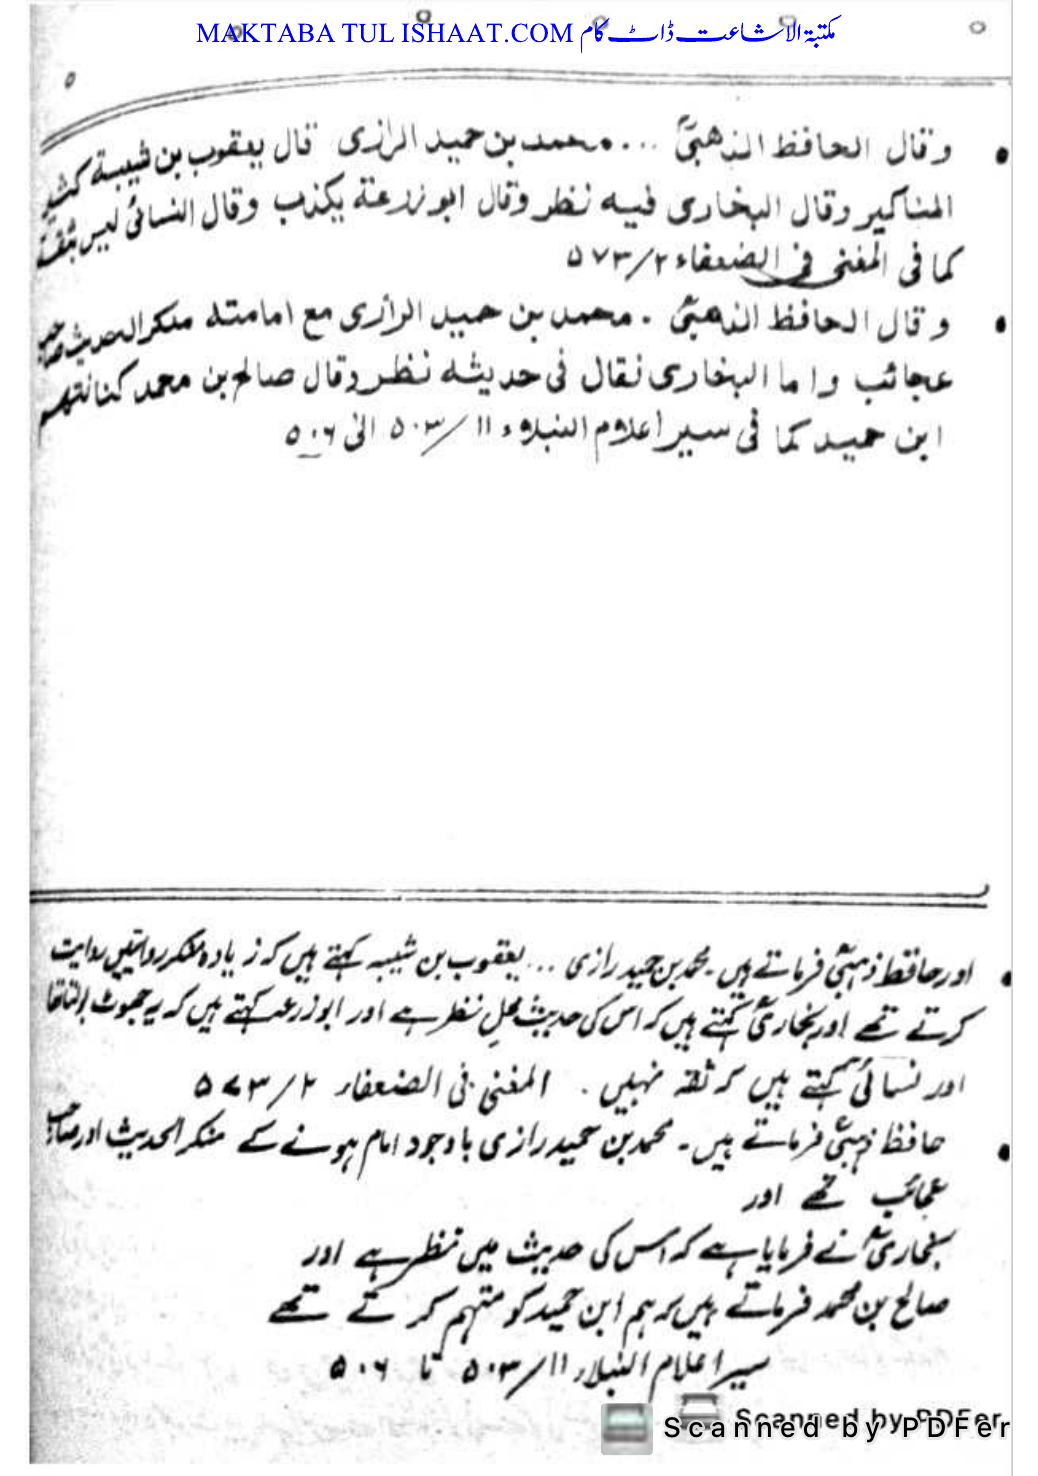 MAKTABA TUL ISHAAT.COM مکتبۃ الاشاعت ڈاٹ کام
۵
• وقال الحافظ الذهبیؒ ... محمد بن حمید الرازی قال یعقوب بن شیبة کثیر
المناکیر وقال البخاری فیه نظر وقال ابو زرعة یکذب وقال النسائی لیس بثقة
کما فی المغنی فی الضعفاء ۲/۵۷۳
• وقال الحافظ الذهبیؒ ۔ محمد بن حمید الرازی مع امامته منکر الحدیث صاحب
عجائب واما البخاری فقال فی حدیثه نظر وقال صالح بن محمد کنا نتهم
ابن حمید کما فی سیر اعلام النبلاء ۱۱/۵۰۳ الی ۵۰۶
• اور حافظ ذہبیؒ فرماتے ہیں۔ محمد بن حمید رازی ... یعقوب بن شیبہ کہتے ہیں کہ زیادہ منکر روایتیں روایت
کرتے تھے اور بخاریؒ کہتے ہیں کہ اس کی حدیث محل نظر ہے اور ابو زرعہ کہتے ہیں کہ یہ جھوٹ بولتا تھا
اور نسائیؒ کہتے ہیں کہ ثقہ نہیں ۔ المغنی فی الضعفاء ۲/۵۷۳
• حافظ ذہبیؒ فرماتے ہیں۔ محمد بن حمید رازی باوجود امام ہونے کے منکر الحدیث اور صاحب
عجائب تھے اور
بخاریؒ نے فرمایا ہے کہ اس کی حدیث میں نظر ہے اور
صالح بن محمد فرماتے ہیں کہ ہم ابن حمید کو متہم کرتے تھے
سیر اعلام النبلاء ۱۱/۵۰۳ تا ۵۰۶
Scanned by PDFer
Scanned by PDFer